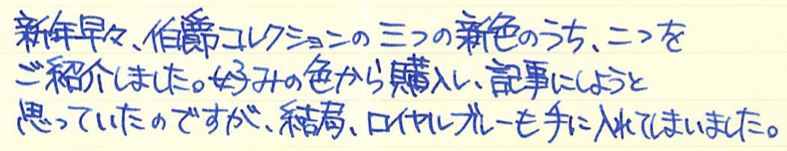 新年早々、伯爵コレクションの三つの新色のうち、二つを
ご紹介しました。好みの色から購入し、記事にしようと
思っていたのですが、結局、ロイヤルブルーも手に入れてしまいました。